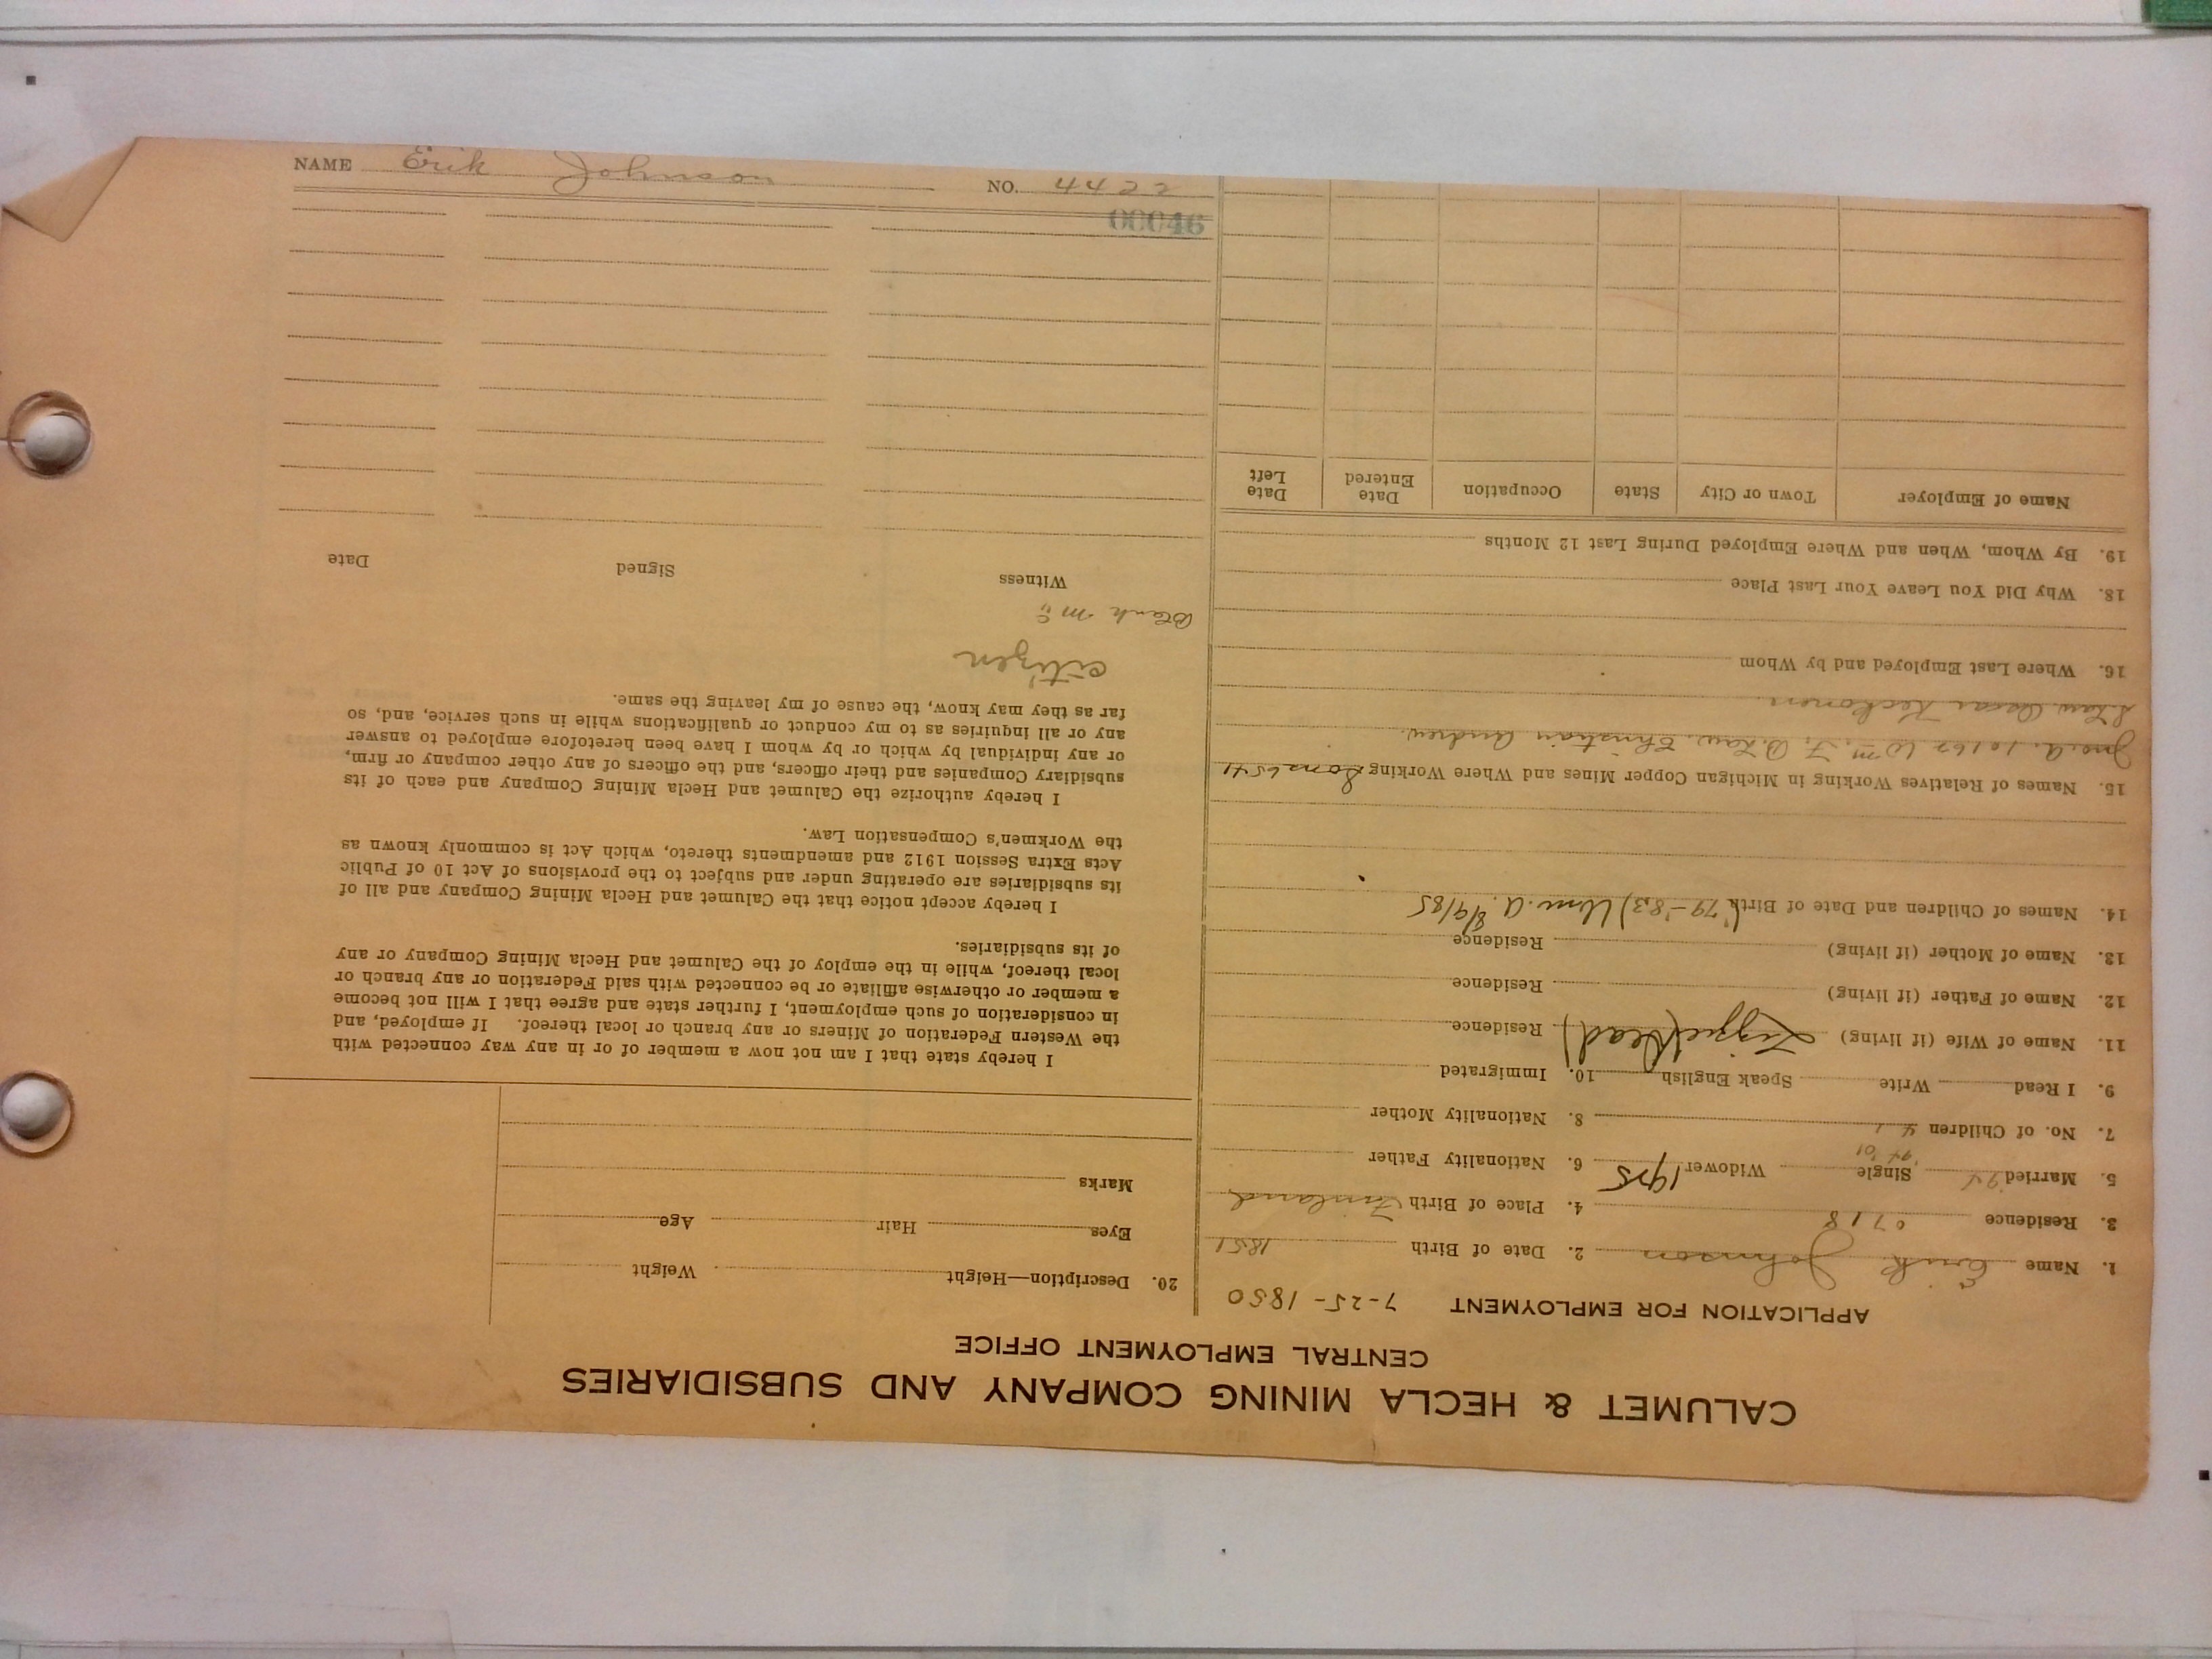 CALUMET & HECLA MINING COMPANY AND SUBSIDIARIES
CENTRAL EMPLOYMENT OFFICE
APPLICATION FOR EMPLOYMENT 7-25-1850
1. Name Erik Johnson 2. Date of Birth 1851
3. Residence 0718 4. Place of Birth Finland
5. Married 94 Single '94 '01 Widower 1905 6. Nationality Father
7. No. of Children 4 1 8. Nationality Mother
9. I Read Write Speak English 10. Immigrated
11. Name of Wife (if living) (dead) Residence
12. Name of Father (if living) Residence
13. Name of Mother (if living) Residence
14. Names of Children and Date of Birth ('79-'83) Wm. A. 8/9/85
15. Names of Relatives Working in Michigan Copper Mines and Where Working Sons 6541
Jno. A. 10162 Wm. F. Christian Andrew.
Oscar Keckonen.
16. Where Last Employed and by Whom
18. Why Did You Leave Your Last Place
19. By Whom, When and Where Employed During Last 12 Months
Name of Employer Town or City State Occupation Date Entered Date Left
20. Description—Height Weight
Eyes Hair Age
Marks
I hereby state that I am not now a member of or in any way connected with
the Western Federation of Miners or any branch or local thereof. If employed, and
in consideration of such employment, I further state and agree that I will not become
a member or otherwise affiliate or be connected with said Federation or any branch or
local thereof, while in the employ of the Calumet and Hecla Mining Company or any
of its subsidiaries.
I hereby accept notice that the Calumet and Hecla Mining Company and all of
its subsidiaries are operating under and subject to the provisions of Act 10 of Public
Acts Extra Session 1912 and amendments thereto, which Act is commonly known as
the Workmen's Compensation Law.
I hereby authorize the Calumet and Hecla Mining Company and each of its
subsidiary Companies and their officers, and the officers of any other company or firm,
or any individual by which or by whom I have been heretofore employed to answer
any or all inquiries as to my conduct or qualifications while in such service, and, so
far as they may know, the cause of my leaving the same.
citizen
Witness Signed Date
00046
NAME Erik Johnson NO. 4422